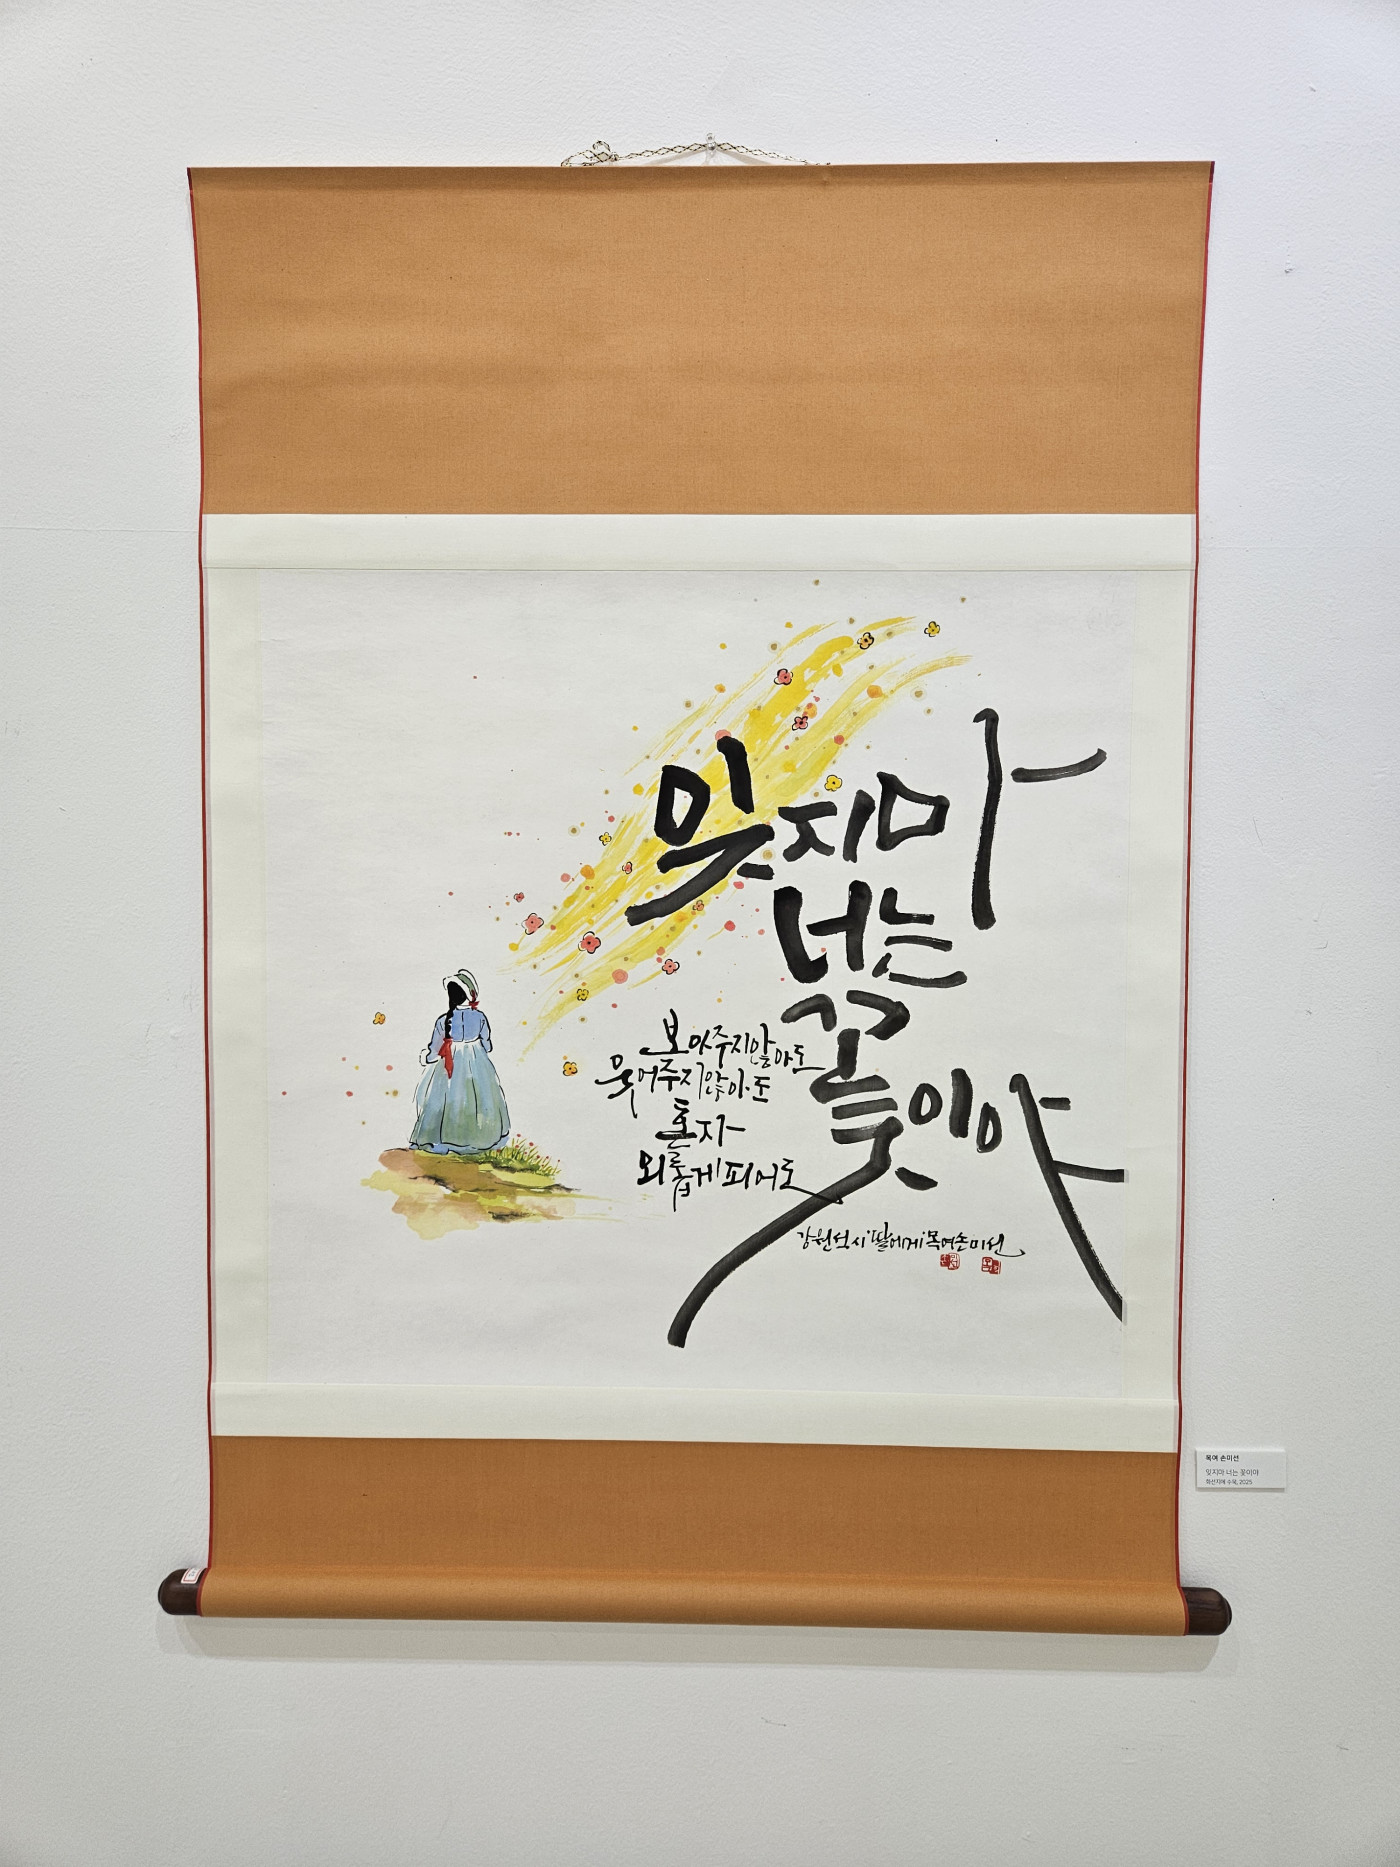 잊지마
너는
꽃
이야
보아주지않아도
웃어주지않아도
혼자
외롭게피어도
강원석시'딸에게'목여손미선
목여 손미선
잊지마 너는 꽃이야
화선지에 수묵, 2025